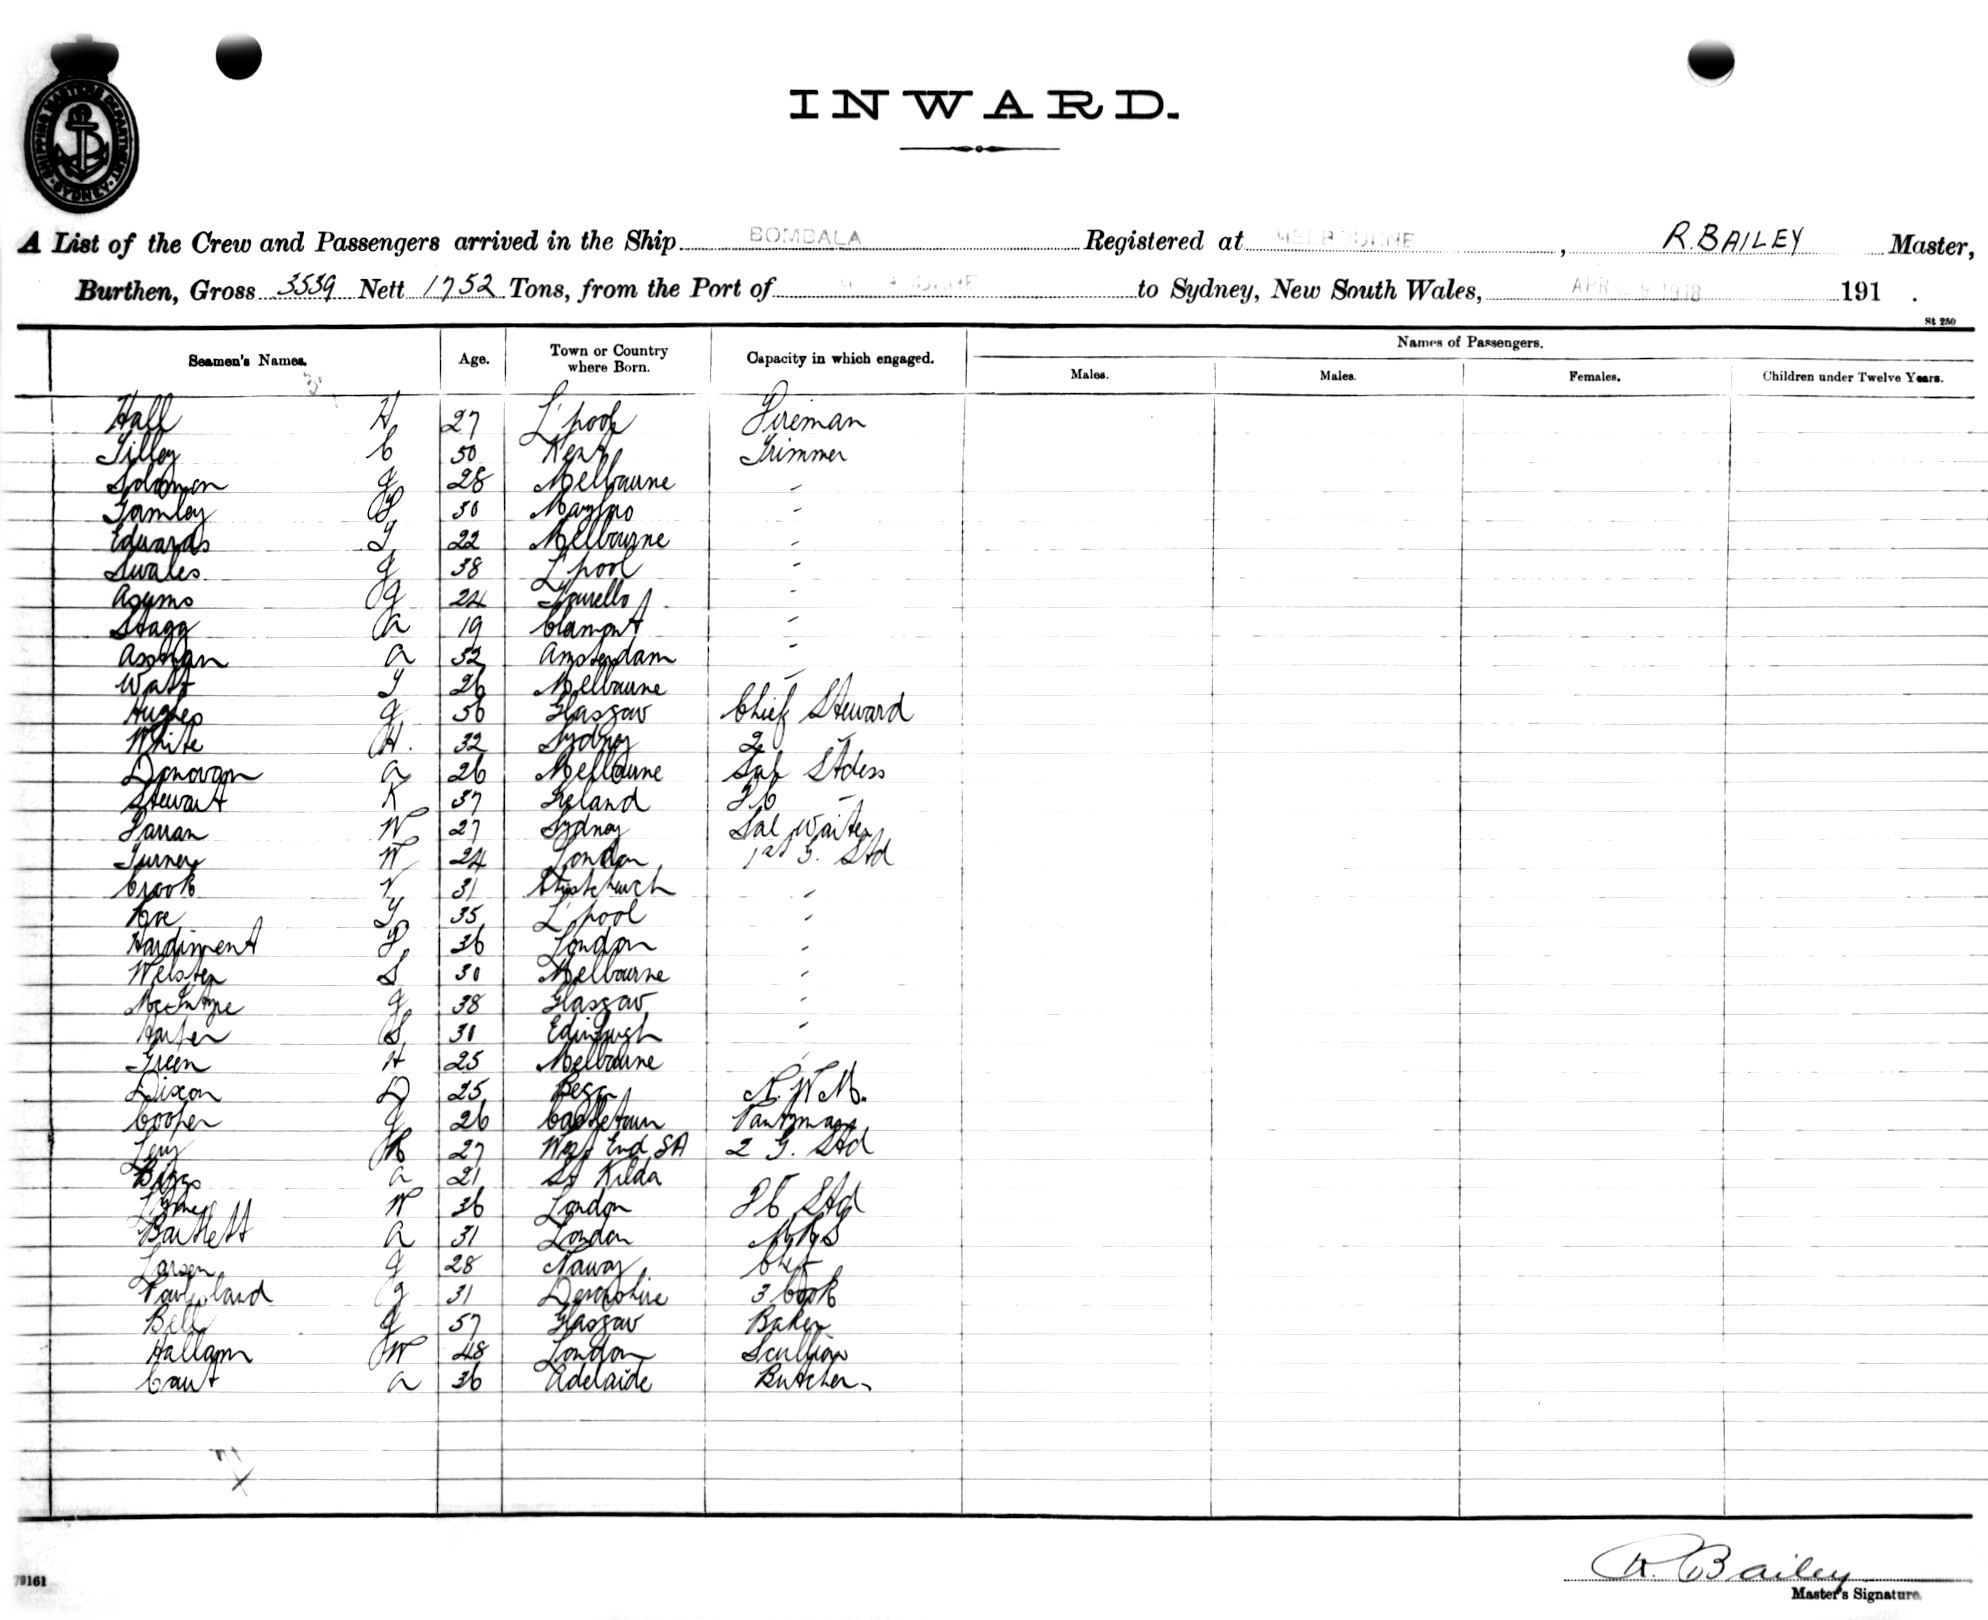 SHIPPING MASTERS DEPARTMENT SYDNEY
INWARD.
A List of the Crew and Passengers arrived in the Ship BOMBALA Registered at MELBOURNE , R. BAILEY Master,
Burthen, Gross 3539 Nett 1752 Tons, from the Port of to Sydney, New South Wales, APR 1918 191 .
St 250
Seamen's Names. Age. Town or Country where Born. Capacity in which engaged. Names of Passengers.
Males. Males. Females. Children under Twelve Years.
Hall H 27 L'pool Fireman
Tilley C 50 Kent Trimmer
Solomon G 28 Melbourne "
30 "
Edwards 22 Melbourne "
Swales G 38 L'pool "
G 24 "
Stagg A 19 "
Assman A 32 Amsterdam "
Watt 26 Melbourne "
Hughes G 56 Glasgow Chief Steward
White H. 32 Sydney 2 "
Donovan A 26 Melbourne Sal Stdess
Stewart K 37 Ireland "
Farran W 27 Sydney Sal Waiter
Turner W 24 London 1st G. Std
Crook V 31 Christchurch "
35 L'pool "
Hardiment 36 London "
Webster S 30 Melbourne "
McIntyre G 38 Glasgow "
Harper S 30 Edinburgh "
Green H 25 Melbourne "
Dixon D 25 Bega
Cooper G 26 Castletown Pantryman
Levy R 27 West End SA 2 G. Std
A 21 St Kilda "
W 36 London Std
Bartlett A 31 London
Larsen G 28 Norway Chef
G 31 Devonshire 3 Cook
Bell G 57 Glasgow Baker
Hallam W 48 London Scullion
Cant A 36 Adelaide Butcher
R. Bailey
Master's Signature.
79161